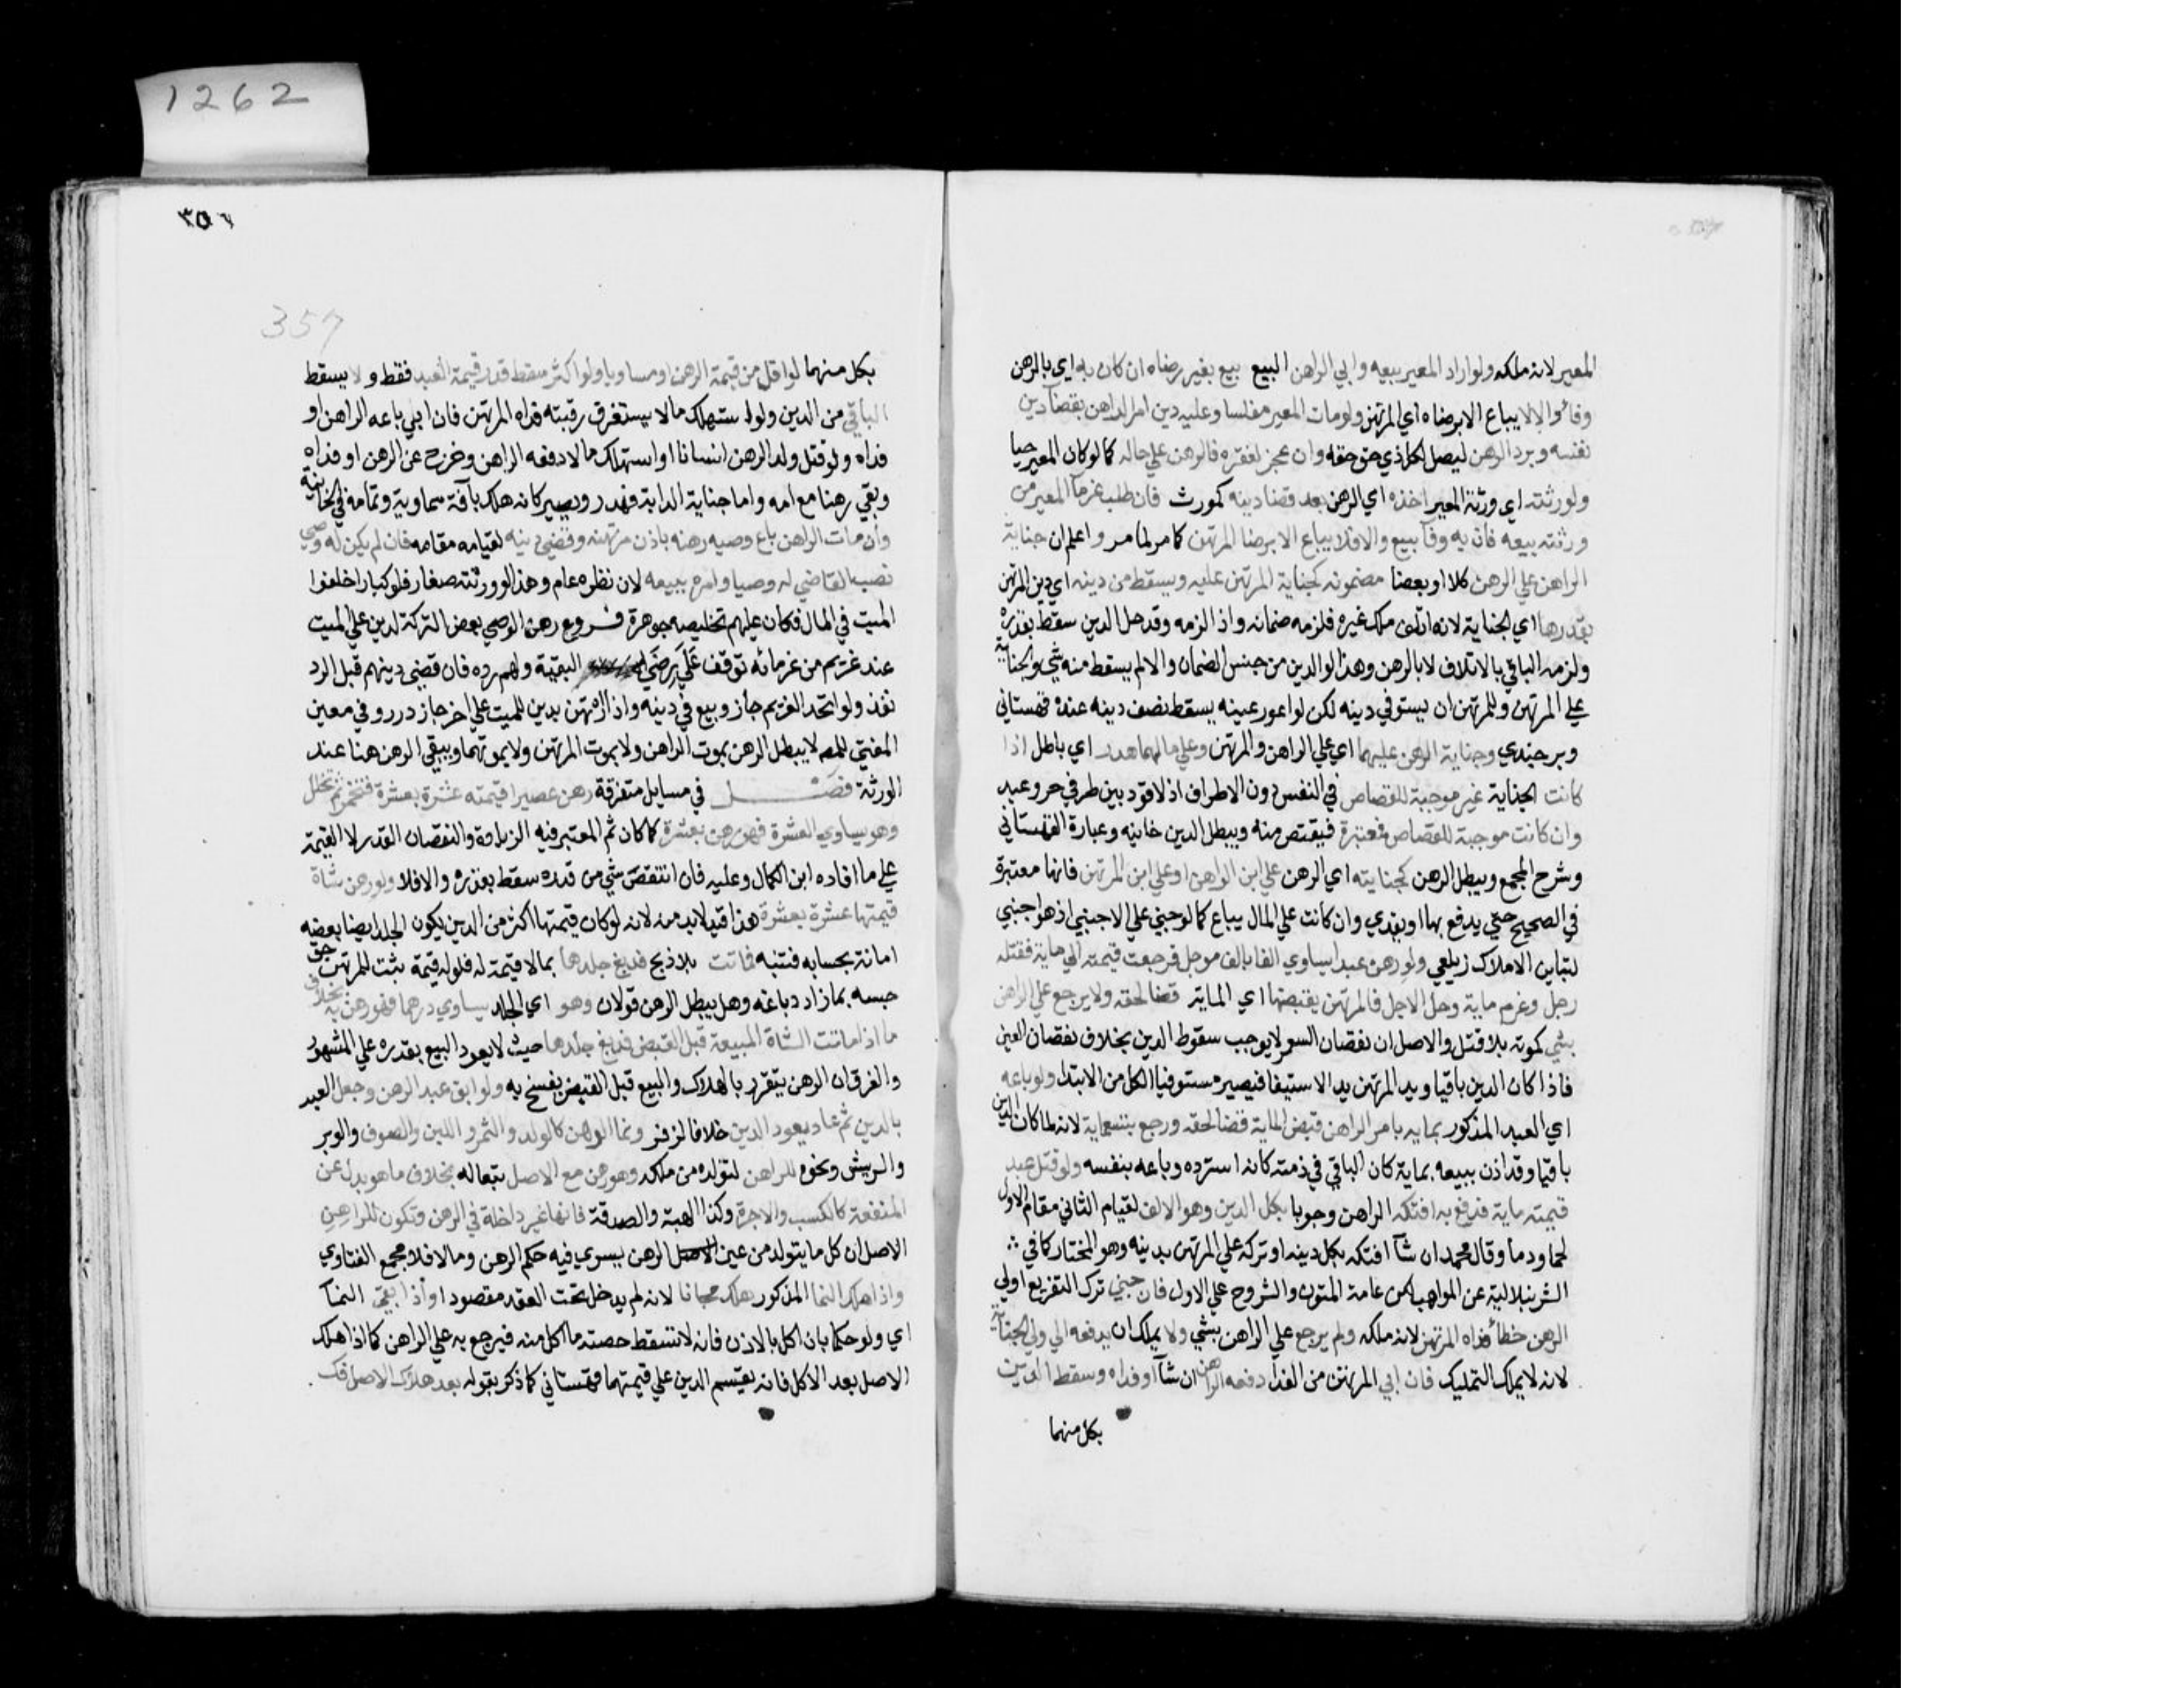 1262
المعير لانه ملكه ولو اراد المعير بيعه وابي الراهن البيع بيع بغير رضاه ان كان به اي بالرهن
وفاء والا لا يباع الا برضاه اي المرتهن ولو مات المعير مفلسا وعليه دين امر الراهن بقضآ دين
نفسه ويرد الرهن ليصل كل ذي حق حقه وان عجز لفقره فالرهن علي حاله كما لو كان المعير حيا
ولورثته اي ورثة المعير اخذه اي الرهن بعد قضا دينه كمورث فان طلب غرمآ المعير من
ورثته بيعه فان به وفآ بيع والا فلا يباع الا برضا المرتهن كما مر لما مر واعلم ان جناية
الراهن علي الرهن كلا او بعضا مضمونه كجناية المرتهن عليه ويسقط من دينه اي دين المرتهن
بقدرها اي الجناية لانه اتلف ملك غيره فلزمه ضمانه واذا لزمه وقد حل الدين سقط بقدره
ولزمه الباقي بالاتلاف لا بالرهن وهذا لو الدين من جنس الضمان والا لم يسقط منه شي والجناية
علي المرتهن وللمرتهن ان يستوفي دينه لكن لو اعور عينه يسقط نصف دينه عنده قهستاني
وبرجندي وجناية الرهن عليهما اي علي الراهن والمرتهن وعلي مالهما هدر اي باطل اذا
كانت الجناية غير موجبة للقصاص في النفس دون الاطراف اذ لا قود بين طرفي حر وعبد
وان كانت موجبة للقصاص فمعتبرة فيقتص منه ويبطل الدين خانيه وعبارة القهستاني
وشرح المجمع ويبطل الرهن كجنايته اي الرهن علي ابن الراهن او علي ابن المرتهن فانها معتبرة
في الصحيح حتي يدفع بها او يفدي وان كانت علي المال يباع كما لو جني علي الاجنبي اذ هو اجنبي
لتباين الاملاك زيلعي ولو رهن عبدا يساوي الفا بالف موجل فرجعت قيمته الي ماية فقتله
رجل وغرم ماية وحل الاجل فالمرتهن يقبضها اي المايه قضا لحقه ولا يرجع علي الراهن
بشي كموته بلا قتل والاصل ان نقصان السعر لا يوجب سقوط الدين بخلاف نقصان العين
فاذا كان الدين باقيا ويد المرتهن يد الاستيفا فيصير مستوفيا الكل من الابتدا ولو باعه
اي العبد المذكور بمايه بامر الراهن قبض الماية قضا لحقه ورجع بتسعماية لانه لما كان الدين
باقيا وقد اذن ببيعه بماية كان الباقي في ذمته كانه استرده وباعه بنفسه ولو قتل عبد
قيمته ماية فدفع به افتكه الراهن وجوبا بكل الدين وهو الالف لقيام الثاني مقام الاول
لحما ودما وقال محمد ان شآ افتكه بكل دينه او تركه علي المرتهن بدينه وهو المختار كما في
الشرنبلالية عن المواهب لكن عامة المتون والشروح علي الاول فان جني ترك التفريع اولي
الرهن خطأ فداه المرتهن لانه ملكه ولم يرجع علي الراهن بشي ولا يملك ان يدفعه الي ولي الجناية
لانه لا يملك التمليك فان ابي المرتهن من الفدا دفعه الراهن ان شآ او فداه وسقط الدين
بكل منهما
٣٥٦
357
بكل منهما لو اقل من قيمة الرهن او مساويا ولو اكثر سقط قدر قيمة العبد فقط ولا يسقط
الباقي من الدين ولو استهلك مالا يستغرق رقبته فداه المرتهن فان ابي باعه الراهن او
فداه ولو قتل ولد الرهن انسانا او استهلك مالا دفعه الراهن وخرج عن الرهن او فداه
وبقي رهنا مع امه واما جناية الدابة فهدر ويصير كانه هلك بآفة سماوية وتمامه في الخانية
وان مات الراهن باع وصيه رهنه باذن مرتهنه وقضي دينه لقيامه مقامه فان لم يكن له وصي
نصب القاضي له وصيا وامره ببيعه لان نظره عام وهذا لو ورثته صغار فلو كبارا خلفوا
الميت في المال فكان عليهم تخليصه جوهرة فروع رهن الوصي بعض التركة لدين علي الميت
عند غريم من غرمائه توقف علي رضي البقية ولهم رده فان قضي دينهم قبل الرد
نفذ ولو اتحد الغريم جاز وبيع في دينه واذا ارتهن بدين للميت علي اخر جاز درر وفي معين
المفتي للمص لا يبطل الرهن بموت الراهن ولا بموت المرتهن ولا بموتهما ويبقي الرهن رهنا عند
الورثة فصل في مسايل متفرقة رهن عصيرا قيمته عشرة بعشرة فتخمر ثم تخلل
وهو يساوي العشرة فهو رهن بعشرة كما كان ثم المعتبر فيه الزيادة والنقصان القدر لا القيمة
علي ما افاده ابن الكمال وعليه فان انتقص شي من قدره سقط بقدره والا فلا ولو رهن شاة
قيمتها عشرة بعشرة هذا قيد لابد منه لانه لو كان قيمتها اكثر من الدين يكون الجلد ايضا بعضه
امانة بحسابه فتنبه فماتت بلا ذبح فدبغ جلدها بما لا قيمة له فلو له قيمة ثبت للمرتهن حق
حبسه بما زاد دباغه وهل يبطل الرهن قولان وهو اي الجلد يساوي درهما فهو رهن به بخلاف
ما اذا ماتت الشاة المبيعة قبل القبض فدبغ جلدها حيث لا يعود البيع بقدره علي المشهور
والفرق ان الرهن يتقرر بالهلاك والبيع قبل القبض يفسخ به ولو ابق عبد الرهن وجعل العبد
بالدين ثم عاد يعود الدين خلافا لزفر ونما الرهن كالولد والثمر واللبن والصوف والوبر
والريش ونحوه للراهن لتولده من ملكه وهو رهن مع الاصل تبعا له بخلاف ما هو بدل عن
المنفعة كالكسب والاجرة وكذا الهبة والصدقة فانها غير داخلة في الرهن وتكون للراهن
الاصل ان كل ما يتولد من عين الرهن يسري فيه حكم الرهن وما لا فلا مجمع الفتاوي
واذا هلك النما المذكور هلك مجانا لانه لم يدخل تحت العقد مقصودا واذا بقي النمآ
اي ولو حكما بان اكل بالاذن فانه لا تسقط حصته ما اكل منه فيرجع به علي الراهن كما اذا هلك
الاصل بعد الاكل فانه يقسم الدين علي قيمتهما قهستاني كما ذكر بقوله بعد هلاك الاصل فك